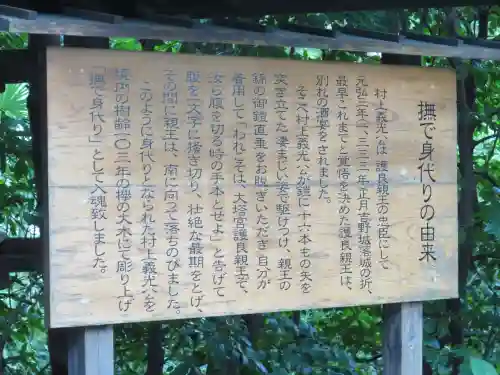 撫で身代りの由来
村上義光公は、護良親王の忠臣にして
元弘三年一、三三三年正月吉野城落城の折、
最早これまでと覚悟を決めた護良親王は、
別れの酒宴をされました。
そこへ村上義光公が鎧に十六本もの矢を
突き立てた凄まじい姿で駆けつけ、親王の
錦の御鎧直垂をお脱ぎいただき自分が
着用して「われこそは、大塔宮護良親王で、
汝ら腹を切る時の手本とせよ」と告げて
腹を一文字に掻き切り、壮絶な最期をとげ、
その間に親王は、南に向って落ちのびました。
このように身代りとなられた村上義光公を
境内の樹齢四〇三年の欅の大木にて彫り上げ
「撫で身代り」として入魂致しました。